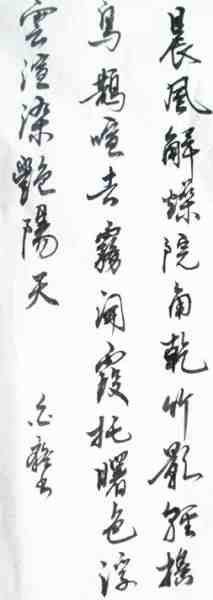 晨風解燥院角乾竹影輕搖
鳥鵲喧去霧開霞托曙色浮
雲渲染艷陽天